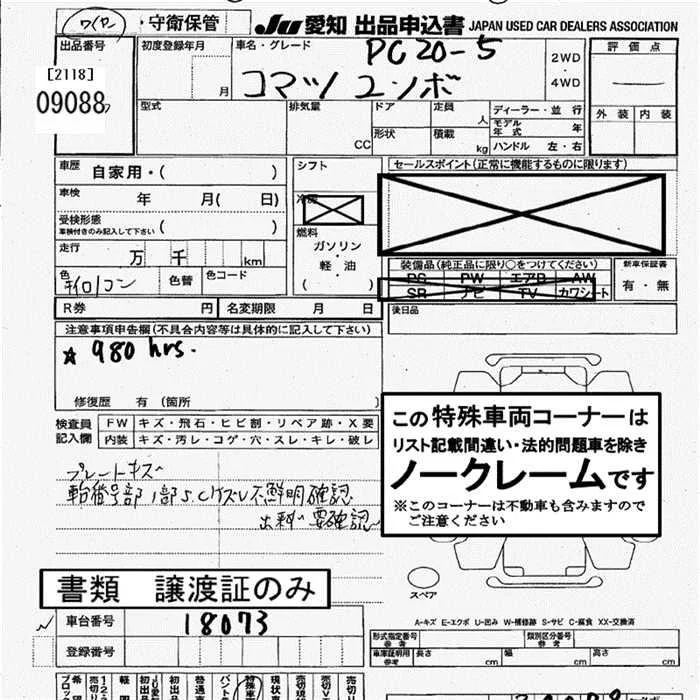 ・守衛保管
JU 愛知 出品申込書 JAPAN USED CAR DEALERS ASSOCIATION
出品番号
[2118]
09088
初度登録年月
月
車名・グレード
PC20-5
コマツ ユンボ
2WD
・
4WD
評価点
外装 内装
型式
排気量
CC
ドア
形状
定員
人
積載
kg
ディーラー・並行
モデル年式 年
ハンドル 左・右
車歴 自家用・( )
車検 年 月( 日)
受検形態
車検付きのみ記入して下さい ( )
走行 万 千 km
色
色替
色コード
シフト
冷房
燃料
ガソリン
・
軽・油
( )
セールスポイント(正常に機能するものに限ります)
装備品(純正品に限り○をつけてください)
PS PW エアB AW
SR ナビ TV カワシート
新車保証書
有・無
R券 円 名変期限 月 日
後日品
注意事項申告欄(不具合内容等は具体的に記入して下さい)
★ 980 hrs.
修復歴 有 (箇所 )
検査員記入欄
FW キズ・飛石・ヒビ割・リペア跡・X要
内装 キズ・汚レ・コゲ・穴・スレ・キレ・破レ
プレートキズ
この特殊車両コーナーは
リスト記載間違い・法的問題車を除き
ノークレームです
※このコーナーは不動車も含みますので
ご注意ください
書類 譲渡証のみ
スペア
車台番号 18073
登録番号
A-キズ E-エクボ U-凹み W-補修跡 S-サビ C-腐食 XX-交換済
形式指定番号
参考
類別区分番号
参考
車庫証明用
参考
長さ cm 幅 cm 高さ cm